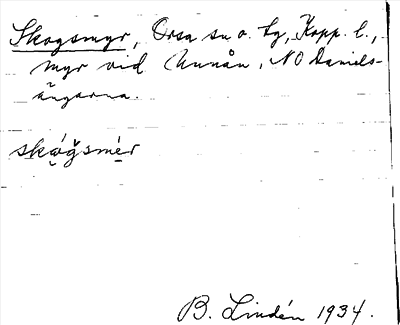 Skogsmyr, Orsa sn o. tg, Kopp. l.,
myr vid Unnån, NO Daniels-
ängarna.
skǫ́ğsmę́r
B. Lindén 1934.